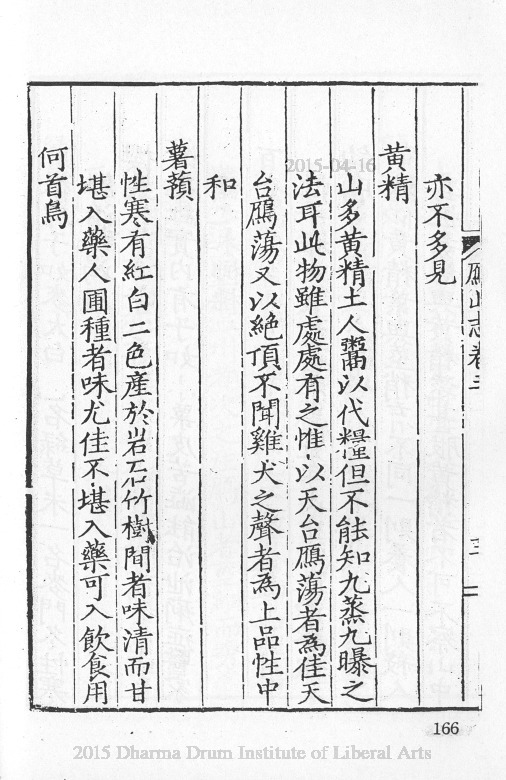 鴈山志卷三
三
亦不多見
黄精
山多黄精土人鬻以代糧但不能知九蒸九曝之
法耳此物雖處處有之惟以天台鴈蕩者為佳天
台鴈蕩又以絶頂不聞雞犬之聲者為上品性中
和
薯蕷
性寒有紅白二色産於岩石竹樹間者味清而甘
堪入藥人圃種者味尤佳不堪入藥可入飲食用
何首烏
2015-04-16
166
2015 Dharma Drum Institute of Liberal Arts